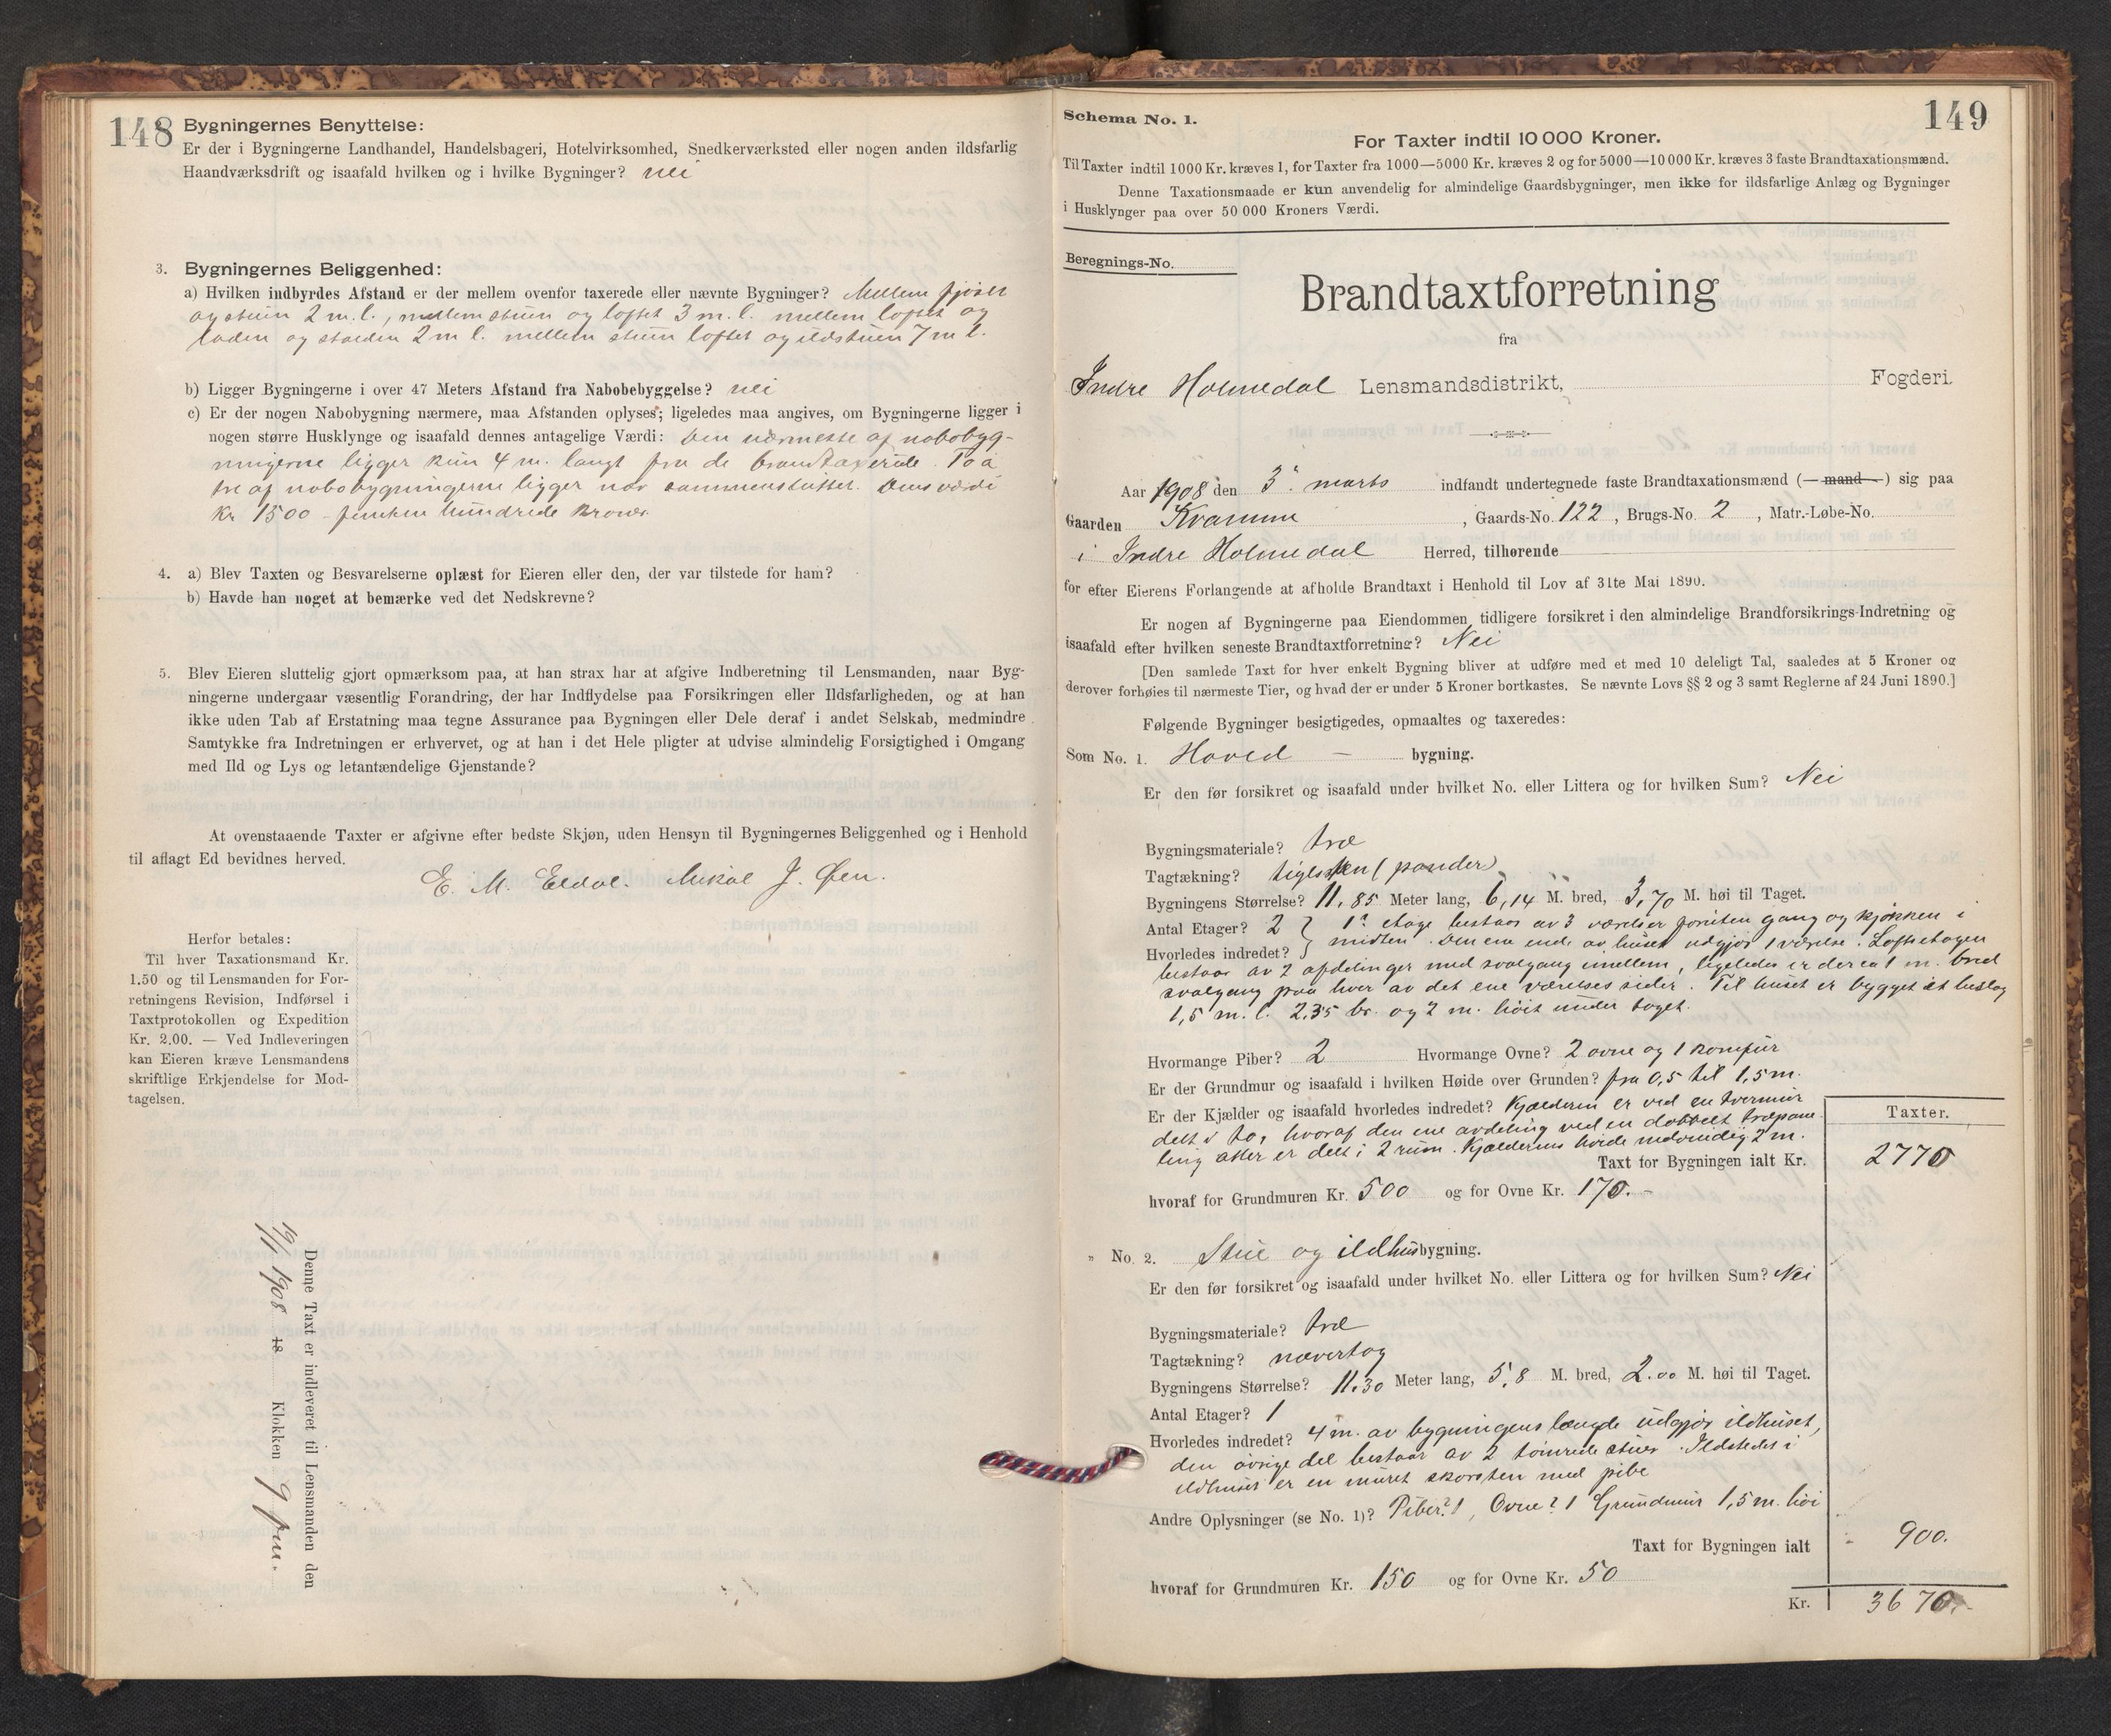 148
Bygningernes Benyttelse:
Er der i Bygningerne Landhandel, Handelsbageri, Hotelvirksomhed, Snedkerværksted eller nogen anden ildsfarlig
Haandværksdrift og isaafald hvilken og i hvilke Bygninger? nei
3. Bygningernes Beliggenhed:
a) Hvilken indbyrdes Afstand er der mellem ovenfor taxerede eller nævnte Bygninger? Mellem fjøset
og stuen 2 m. l., mellem stuen og loftet 3 m. l. mellem loftet og
laden og stalden 2 m l. mellem stuen loftet og ildstuen 7 m l.
b) Ligger Bygningerne i over 47 Meters Afstand fra Nabobebyggelse? nei
c) Er der nogen Nabobygning nærmere, maa Afstanden oplyses; ligeledes maa angives, om Bygningerne ligger i
nogen større Husklynge og isaafald dennes antagelige Værdi: Den nærmeste af nabobyg-
ningerne ligger kun 4 m. langt fra de brandtaxerede. To á
tre af nabobygningerne ligger nær sammensluttet. Dens værdi
Kr 1500 - femten hundrede Kroner.
4. a) Blev Taxten og Besvarelserne oplæst for Eieren eller den, der var tilstede for ham?
b) Havde han noget at bemærke ved det Nedskrevne?
5. Blev Eieren sluttelig gjort opmærksom paa, at han strax har at afgive Indberetning til Lensmanden, naar Byg-
ningerne undergaar væsentlig Forandring, der har Indflydelse paa Forsikringen eller Ildsfarligheden, og at han
ikke uden Tab af Erstatning maa tegne Assurance paa Bygningen eller Dele deraf i andet Selskab, medmindre
Samtykke fra Indretningen er erhvervet, og at han i det Hele pligter at udvise almindelig Forsigtighed i Omgang
med Ild og Lys og letantændelige Gjenstande?
At ovenstaaende Taxter er afgivne efter bedste Skjøn, uden Hensyn til Bygningernes Beliggenhed og i Henhold
til aflagt Ed bevidnes herved.
E. M. Eldal. Mikal J. Øen.
Herfor betales:
Til hver Taxationsmand Kr.
1.50 og til Lensmanden for For-
retningens Revision, Indførsel i
Taxtprotokollen og Expedition
Kr. 2.00. — Ved Indleveringen
kan Eieren kræve Lensmandens
skriftlige Erkjendelse for Mod-
tagelsen.
Denne Taxt er indleveret til Lensmanden den
1908 18 Klokken 9 fm.
149
Schema No. 1.
For Taxter indtil 10 000 Kroner.
Til Taxter indtil 1000 Kr. kræves 1, for Taxter fra 1000—5000 Kr. kræves 2 og for 5000—10 000 Kr. kræves 3 faste Brandtaxationsmænd.
Denne Taxationsmaade er kun anvendelig for almindelige Gaardsbygninger, men ikke for ildsfarlige Anlæg og Bygninger
i Husklynger paa over 50 000 Kroners Værdi.
Beregnings-No.
Brandtaxtforretning
fra
Indre Holmedal Lensmandsdistrikt, Fogderi.
Aar 1908 den 3. marts indfandt undertegnede faste Brandtaxationsmænd (—mand—) sig paa
Gaarden Kvamme, Gaards-No. 122, Brugs-No. 2, Matr.-Løbe-No.
i Indre Holmedal Herred, tilhørende
for efter Eierens Forlangende at afholde Brandtaxt i Henhold til Lov af 31te Mai 1890.
Er nogen af Bygningerne paa Eiendommen tidligere forsikret i den almindelige Brandforsikrings-Indretning og
isaafald efter hvilken seneste Brandtaxtforretning? Nei
[Den samlede Taxt for hver enkelt Bygning bliver at udføre med et med 10 deleligt Tal, saaledes at 5 Kroner og
derover forhøies til nærmeste Tier, og hvad der er under 5 Kroner bortkastes. Se nævnte Lovs §§ 2 og 3 samt Reglerne af 24 Juni 1890.]
Følgende Bygninger besigtigedes, opmaaltes og taxeredes:
Som No. 1. Hoved — bygning.
Er den før forsikret og isaafald under hvilket No. eller Littera og for hvilken Sum? Nei
Bygningsmateriale? træ
Tagtækning? tiglsten (pander)
Bygningens Størrelse? 11,85 Meter lang, 6,14 M. bred, 3,70 M. høi til Taget.
Antal Etager? 2 } 1ª etage bestaar av 3 værelser foruten gang og kjøkken i
Hvorledes indredet? midten. Den ene ende av huset udgjør 1 værelse. Loftsetagen
bestaar av 2 afdelinger med svalgang imellem, ligeledes er der ca 1 m. bred
svalgang paa hver av det ene værelses sider. Til huset er bygget et beslag
1,5 m. l. 2,35 br. og 2 m. høit under taget.
Hvormange Piber? 2 Hvormange Ovne? 2 ovne og 1 komfür
Er der Grundmur og isaafald i hvilken Høide over Grunden? fra 0,5 til 1,5 m.
Er der Kjælder og isaafald hvorledes indredet? Kjælderen er ved en tvermur
delt i to, hvoraf den ene avdeling ved en dobbelt træpane
ling atter er delt i 2 rum. Kjælderens høide indvendig 2 m.
Taxter.
Taxt for Bygningen ialt Kr. 2770
hvoraf for Grundmuren Kr. 500 og for Ovne Kr. 170.-
" No. 2. Stue og ildhusbygning.
Er den før forsikret og isaafald under hvilket No. eller Littera og for hvilken Sum? Nei
Bygningsmateriale? træ
Tagtækning? nævertag
Bygningens Størrelse? 11.30 Meter lang, 5,8 M. bred, 2.00 M. høi til Taget.
Antal Etager? 1
Hvorledes indredet? 4 m. av bygningens længde udgjør ildhuset,
den øvrige del bestaar av 2 tømrede stuer. Ildstedet i
ildhuset er en muret skorsten med pibe
Andre Oplysninger (se No. 1)? Piber? 1, Ovne? 1 Grundmur 1,5 m. høi
Taxt for Bygningen ialt 900.
hvoraf for Grundmuren Kr. 150 og for Ovne Kr. 50
Kr. 3670.-